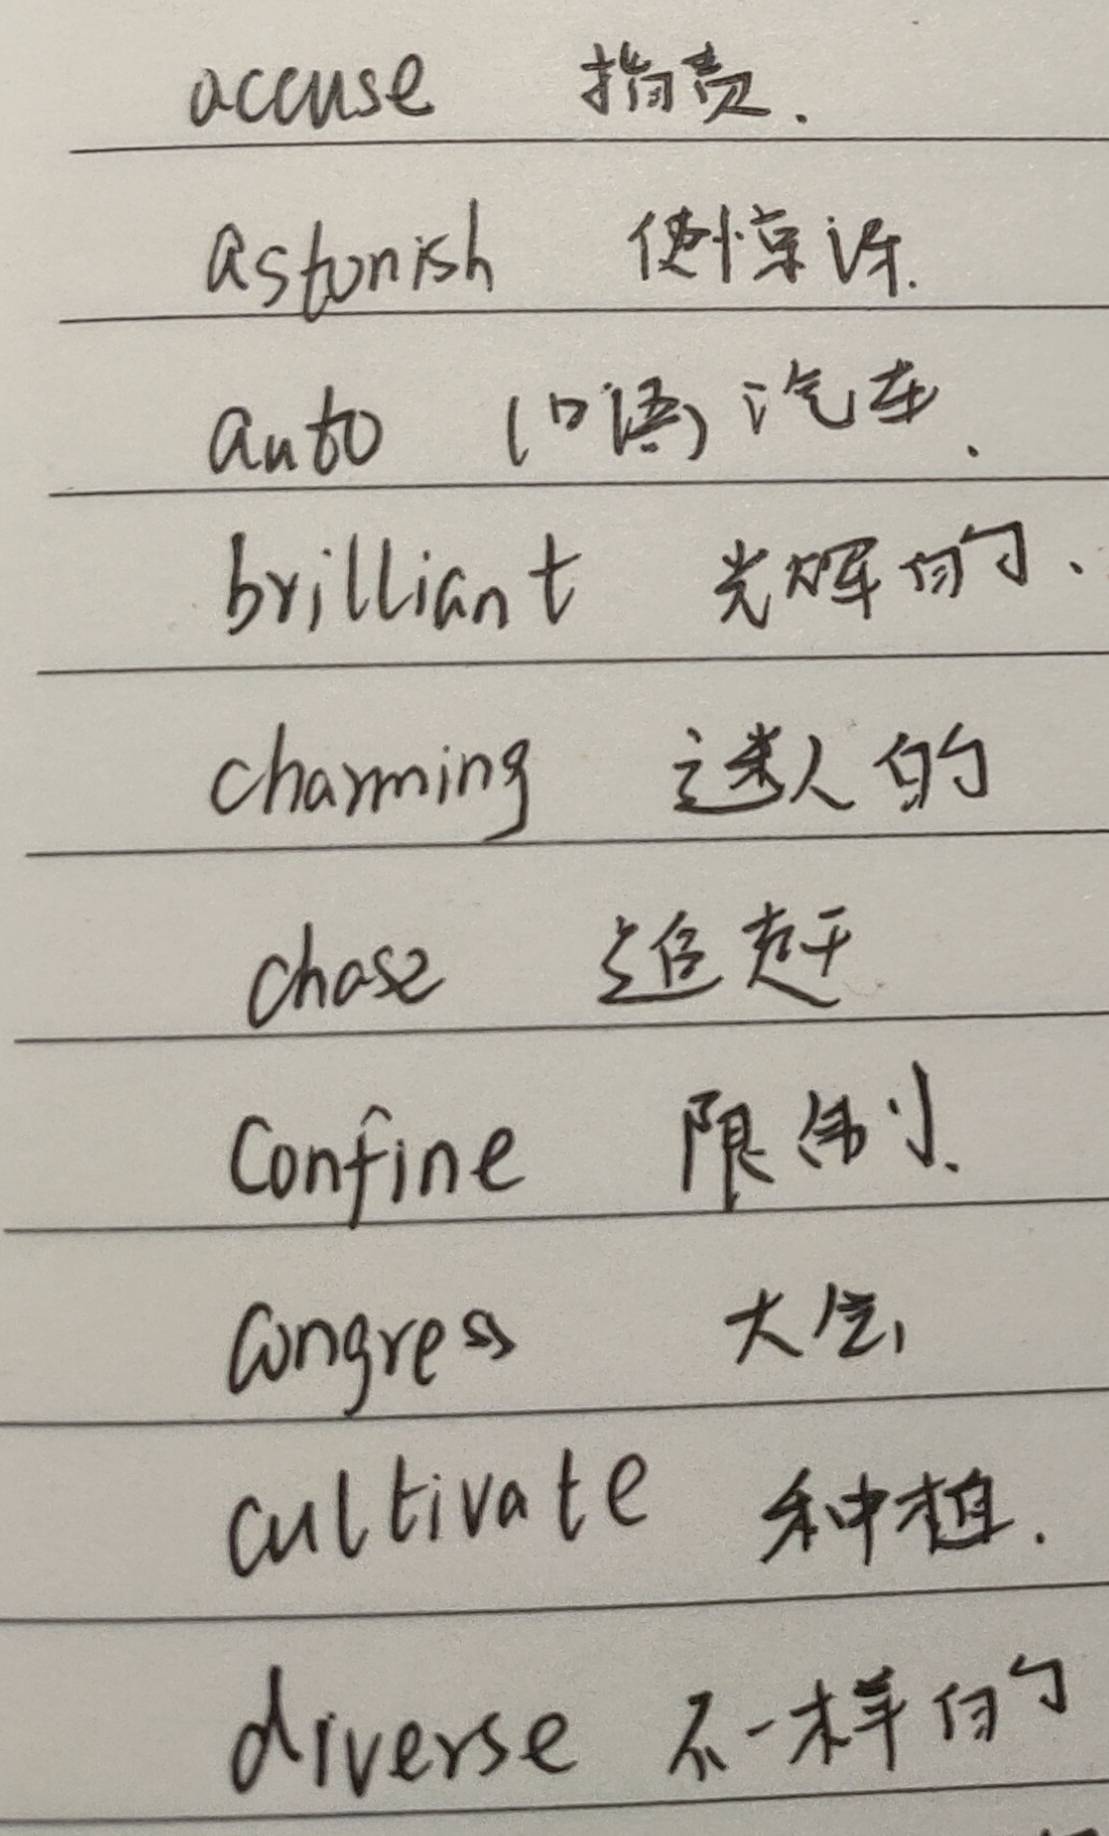 accuse 指责.
astonish 使惊讶.
auto (口语) 汽车.
brilliant 光辉的、
charming 迷人的
chase 追赶
confine 限制.
congress 大会,
cultivate 种植.
diverse 不一样的